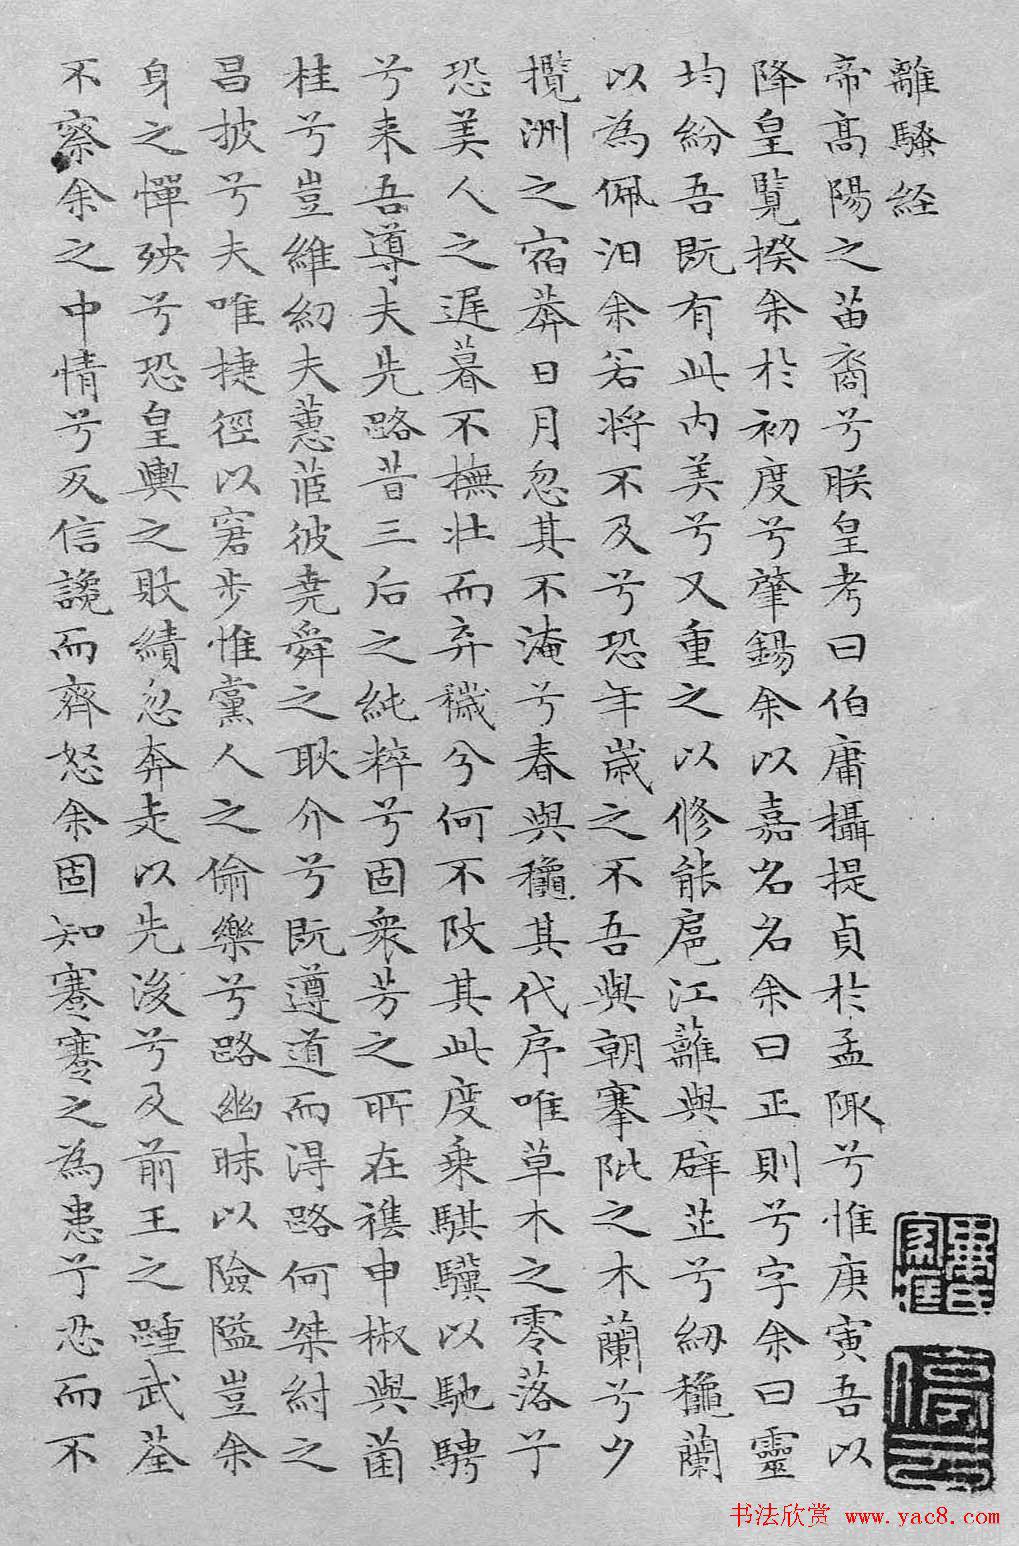 離騷経
帝高陽之苗裔兮朕皇考曰伯庸攝提貞於孟陬兮惟庚寅吾以
降皇覽揆余於初度兮肇錫余以嘉名名余曰正則兮字余曰靈
均紛吾既有此内美兮又重之以修能扈江蘺與辟芷兮紉穐蘭
以為佩汨余若將不及兮恐年歲之不吾與朝搴阰之木蘭兮夕
攬洲之宿莽日月忽其不淹兮春與穐其代序唯草木之零落兮
恐美人之遲暮不撫壯而弃穢兮何不改其此度乗騏驥以馳騁
兮来吾導夫先路昔三后之純粹兮固衆芳之所在襍申椒與菌
桂兮豈維紉夫蕙茝彼堯舜之耿介兮既遵道而得路何桀紂之
昌披兮夫唯捷徑以窘步惟黨人之偷樂兮路幽昧以險隘豈余
身之憚殃兮恐皇輿之敗績忽奔走以先後兮及前王之踵武荃
不察余之中情兮反信讒而齊怒余固知謇謇之為患兮忍而不
停雲
书法欣赏 www.yac8.com